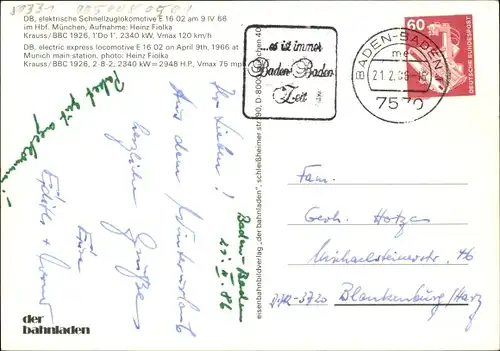 DB, elektrische Schnellzuglokomotive E 16 02 am 9 IV 66
im Hbf. München, Aufnahme: Heinz Fiolka
Krauss/BBC 1926, 1'Do 1', 2340 kW, Vmax 120 km/h
DB, electric express locomotive E 16 02 on April 9th, 1966 at
Munich main station, photo: Heinz Fiolka
Krauss/BBC 1926, 2-8-2, 2340 kW = 2948 H.P., Vmax 75 mph
...es ist immer
Baden-Baden
Zeit
BADEN-BADEN
21.2.86-18
me
7570
60
DEUTSCHE BUNDESPOST
Paket gut angekommen!
Ihr Lieben!
Aus dem Winterurlaub
herzliche Grüße
Eure
Baden-Baden
21.II.86
eisenbahnbildverlag „der bahnladen", schleißheimer str. 90, D-8000 München 40
Fam.
Gerh. Hotzas
Michaelsteinerstr. 46
DDR-3720 Blankenburg/Harz
der
bahnladen